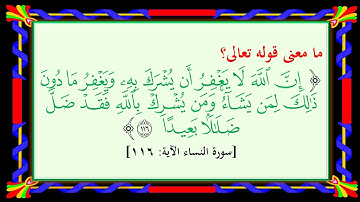 ما معنى قوله تعالى؟
﴿ إِنَّ ٱللَّهَ لَا يَغْفِرُ أَن يُشْرَكَ بِهِۦ وَيَغْفِرُ مَا دُونَ
ذَٰلِكَ لِمَن يَشَآءُ ۚ وَمَن يُشْرِكْ بِٱللَّهِ فَقَدْ ضَلَّ
ضَلَٰلًۢا بَعِيدًا ﴿١١٦﴾ ﴾
[سورة النساء الآية: ١١٦]